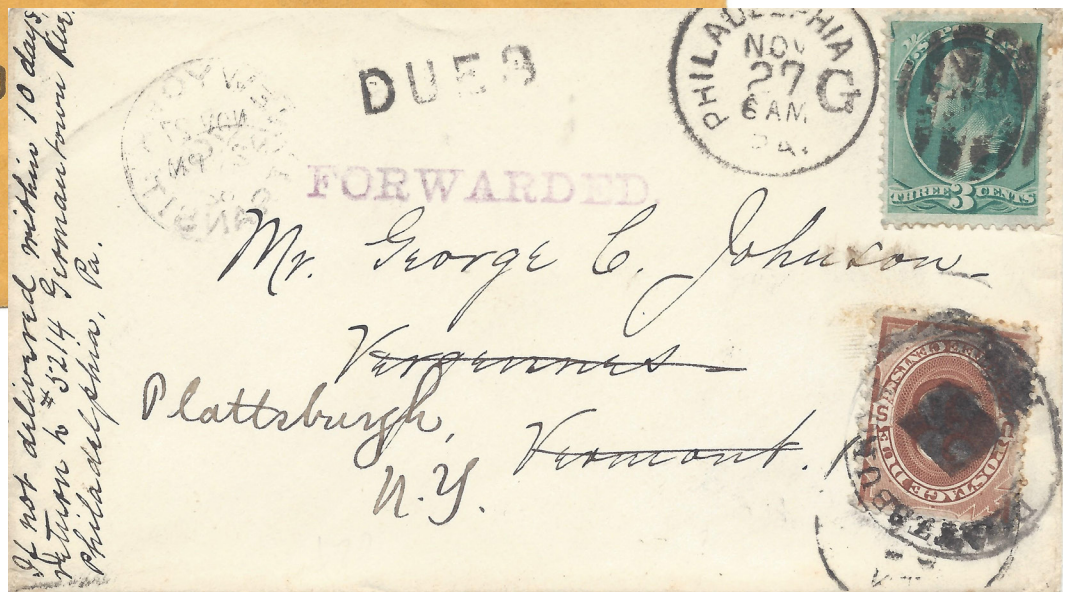 If not delivered within 10 days,
return to #5214 Germantown Ave.
Philadelphia, Pa.
DUE 3
PHILADELPHIA
NOV
27
6 AM
PA.
G
U.S. POSTAGE
THREE 3 CENTS
FORWARDED.
Mr. George C. Johnson
Vergennes
Plattsburgh,
Vermont.
N.Y.
POSTAGE DUE